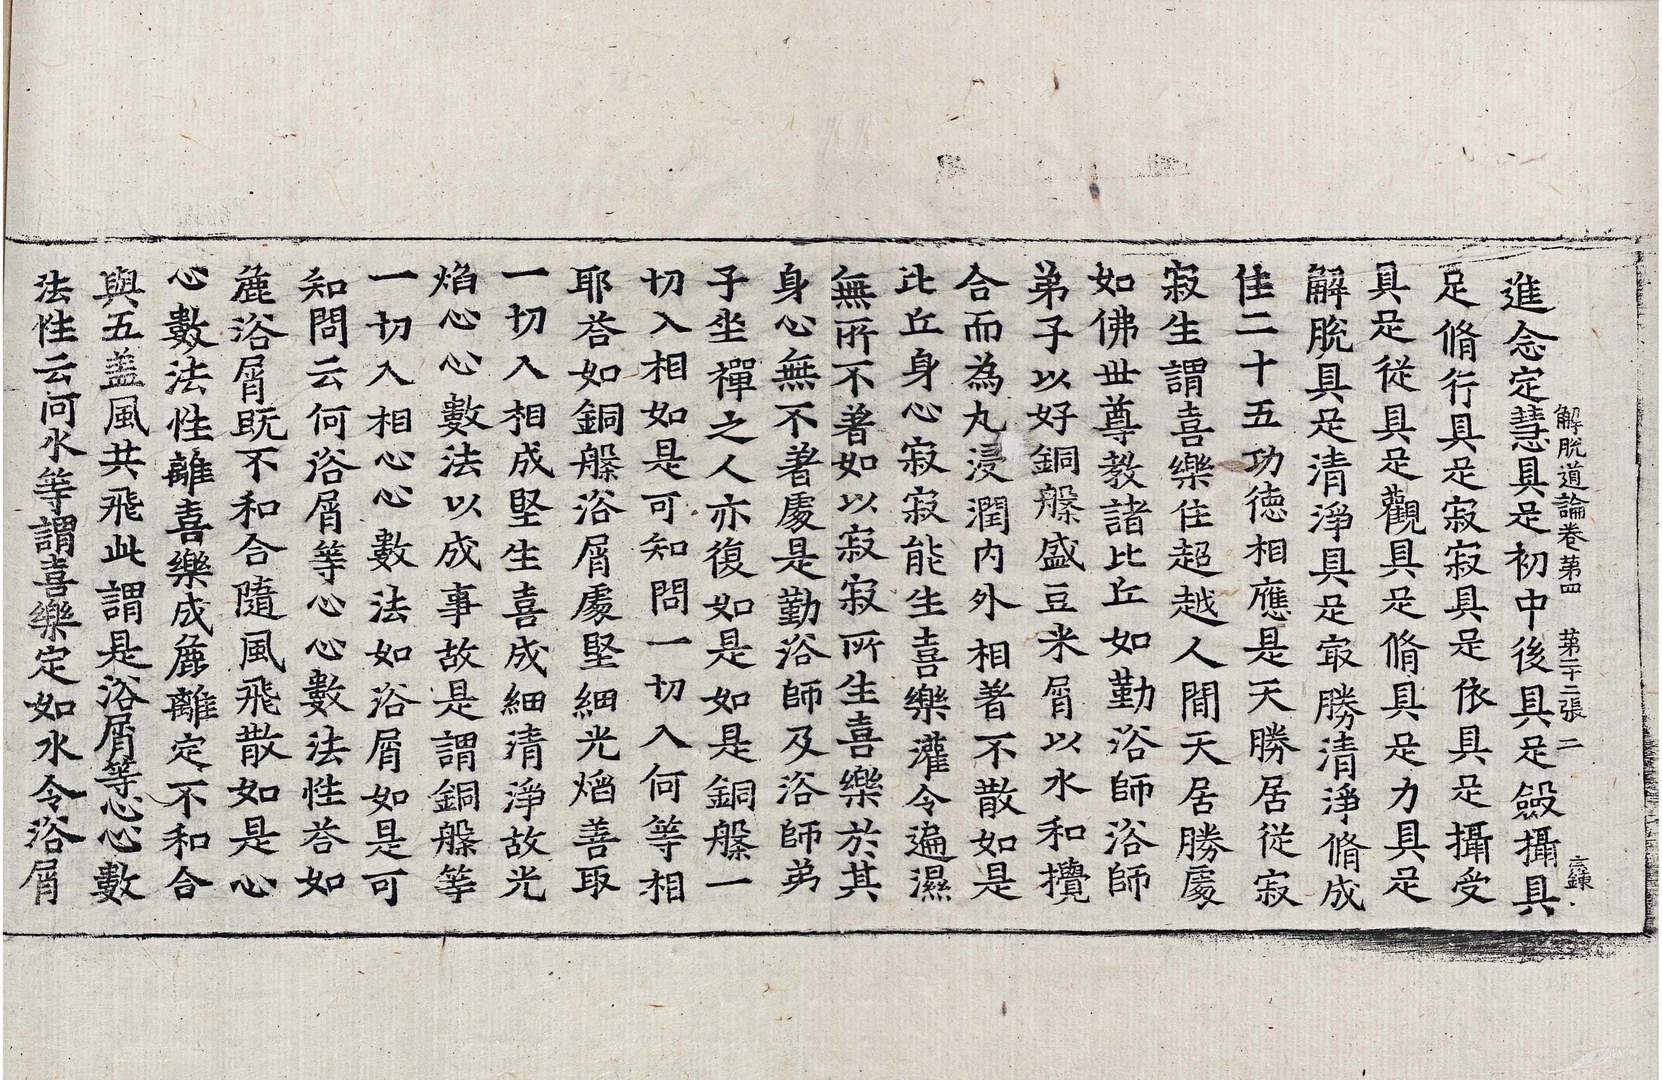 解脫道論卷第四　第二十二張　二
進念定慧具足初中後具足斂攝具
足脩行具足寂寂具足依具足攝受
具足從具足觀具足脩具足力具足
解脫具足清淨具足㝡勝清淨脩成
住二十五功徳相應是天勝居從寂
寂生謂喜樂住超越人間天居勝處
如佛世尊教諸比丘如勤浴師浴師
弟子以好銅槃盛豆米屑以水和攪
合而為丸浸潤内外相著不散如是
比丘身心寂寂能生喜樂灌令遍濕
無所不著如以寂寂所生喜樂於其
身心無不著處是勤浴師及浴師弟
子坐禪之人亦復如是如是銅槃一
切入相如是可知問一切入何等相
耶荅如銅槃浴屑處堅細光焰善取
一切入相成堅生喜成細清淨故光
焰心心數法以成事故是謂銅槃等
一切入相心心數法如浴屑如是可
知問云何浴屑等心心數法性荅如
麁浴屑既不和合隨風飛散如是心
心數法性離喜樂成麁離定不和合
與五盖風共飛此謂是浴屑等心心數
法性云何水等謂喜樂定如水令浴屑